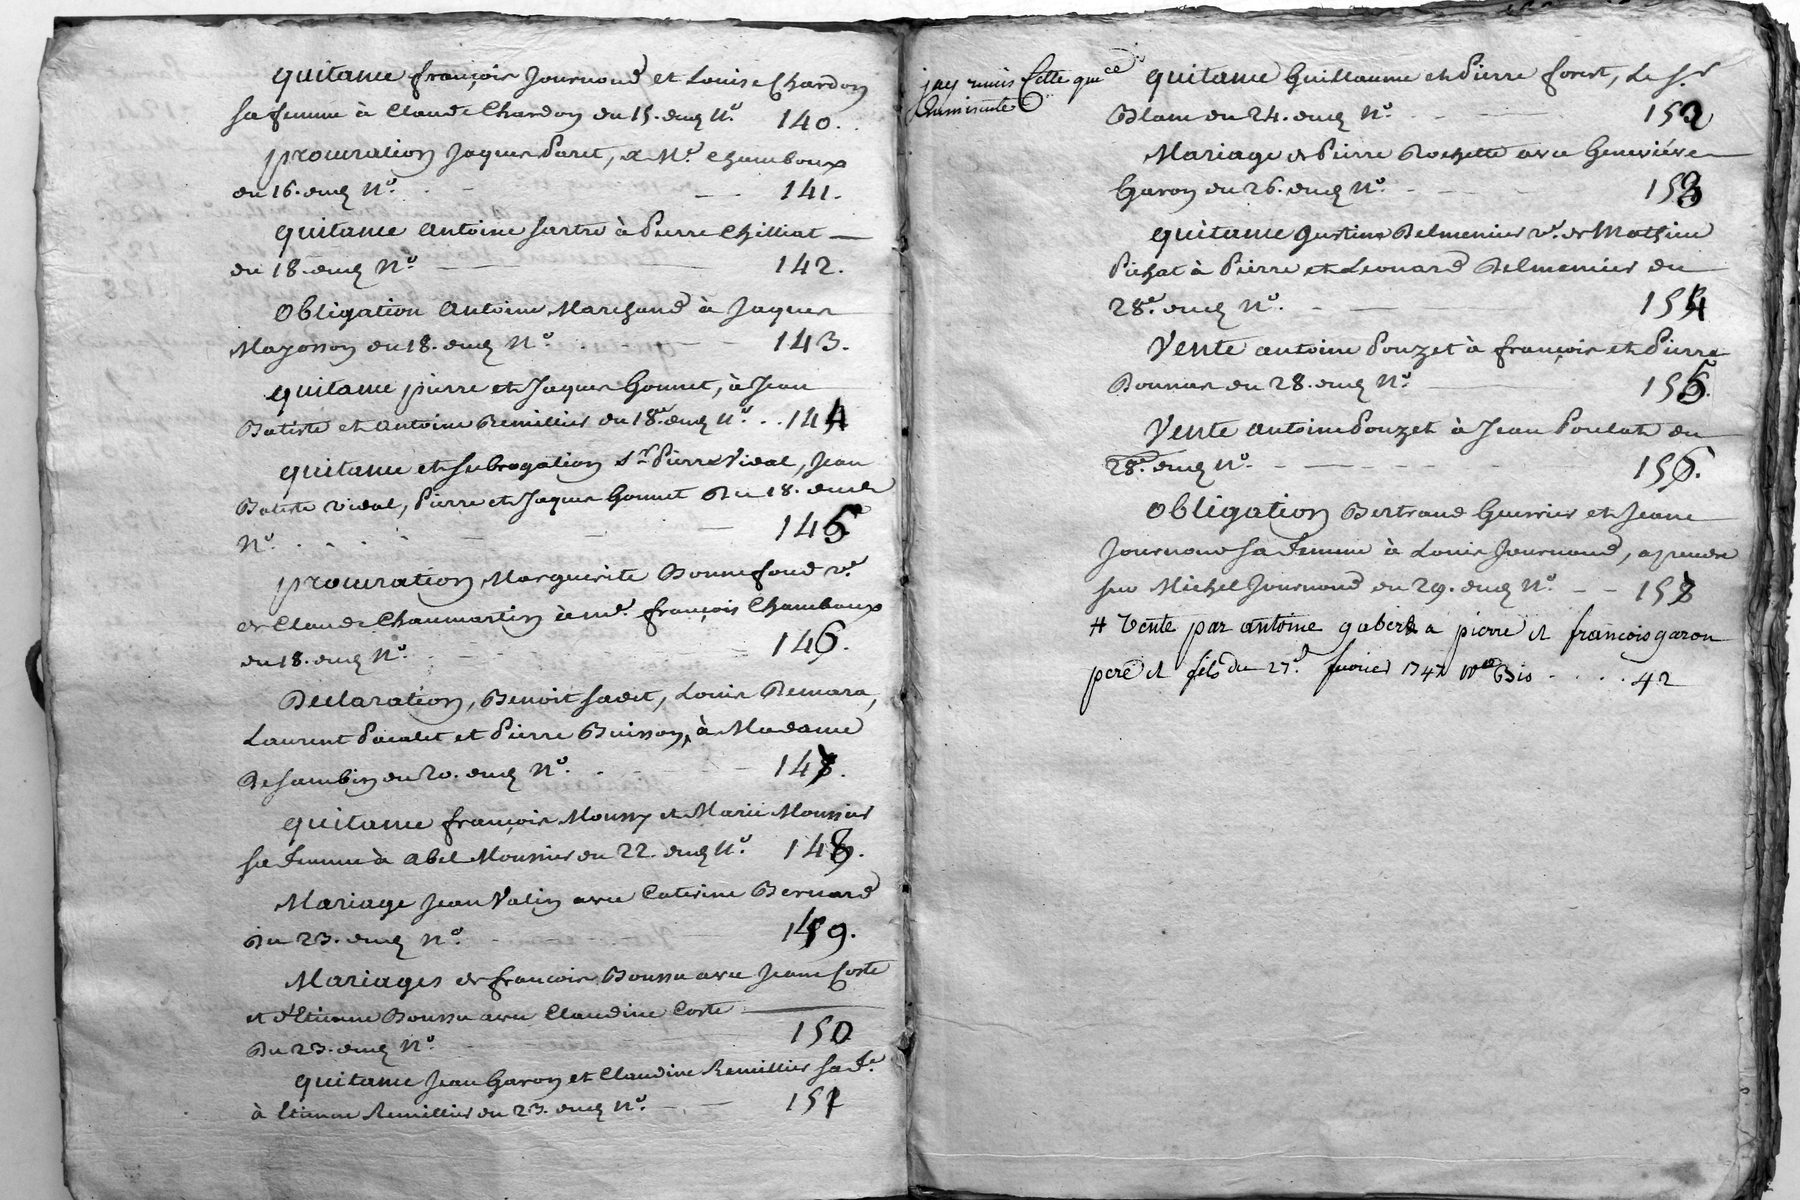 quitance françois Journoud et Louise Chardon
sa femme à Claude Chardon du 15. dud N.º 140.
procuration Jaques Paret, a Me. Chamboux
du 16. dud N.º 141.
quitance Antoine Sartre à Pierre Chilliat
du 18. dud N.º 142.
Obligation Antoine Marchand à Jaques
Mayosson du 18. dud N.º 143.
quitance pierre et Jaques Gonnet, à Jean
Batiste et antoine Remillier du 18e. dud N.º 144
quitance et subrogation Sr. Pierre Vidal, Jean
Batiste vidal, Pierre et Jaques Gonnet du 18. dud
N.º 145
procuration, Marguerite Bonnefond ve.
de Claude Chaumartin à me. françois Chamboux
du 18. dud N.º 146.
Declaration, Benoit Sadet, Louis Demara,
Laurent et Pierre Buisson, à Madame
du 20. dud N.º 147.
quitance françois Moussy et Marie Mounier
sa femme à abel Mounier du 22. dud N.º 148.
Mariage Jean Valin avec Caterine Bernard
Du 23. dud N.º 149.
Mariages de françois Boussu avec Jeane Coste
et d'Etienne Boussu avec Claudine Coste
Du 23. dud N.º 150
quitance Jean Garon et Claudine Remillier sa fe.
à Etienne Remillier du 23. dud N.º 151
jay remis Cette quce
quitance Guillaume et Pierre forest, Le Sr
Blanc du 24. dud N.º 152
Mariage de Pierre Rochette avec Genevieve
Garon du 26. dud N.º 153
quitance Delmenier ve. de Mathieu
Pichat à Pierre et Leonard Delmenier du
28e. dud N.º 154
Vente antoine Pouzet à françois et Pierre
Bonnar du 28. dud N.º 155.
Vente antoine Pouzet à Jean Poulat du
28e. dud N.º 156.
Obligation Bertrand Guerrier et Jeane
Journoud sa femme à Louis Journoud, a prendre
sur Michel Journoud du 29. dud N.º 157
# Vente par antoine gabert a pierre et francois garon
pere et fils du 27e. fevrier 1747 Bis 42